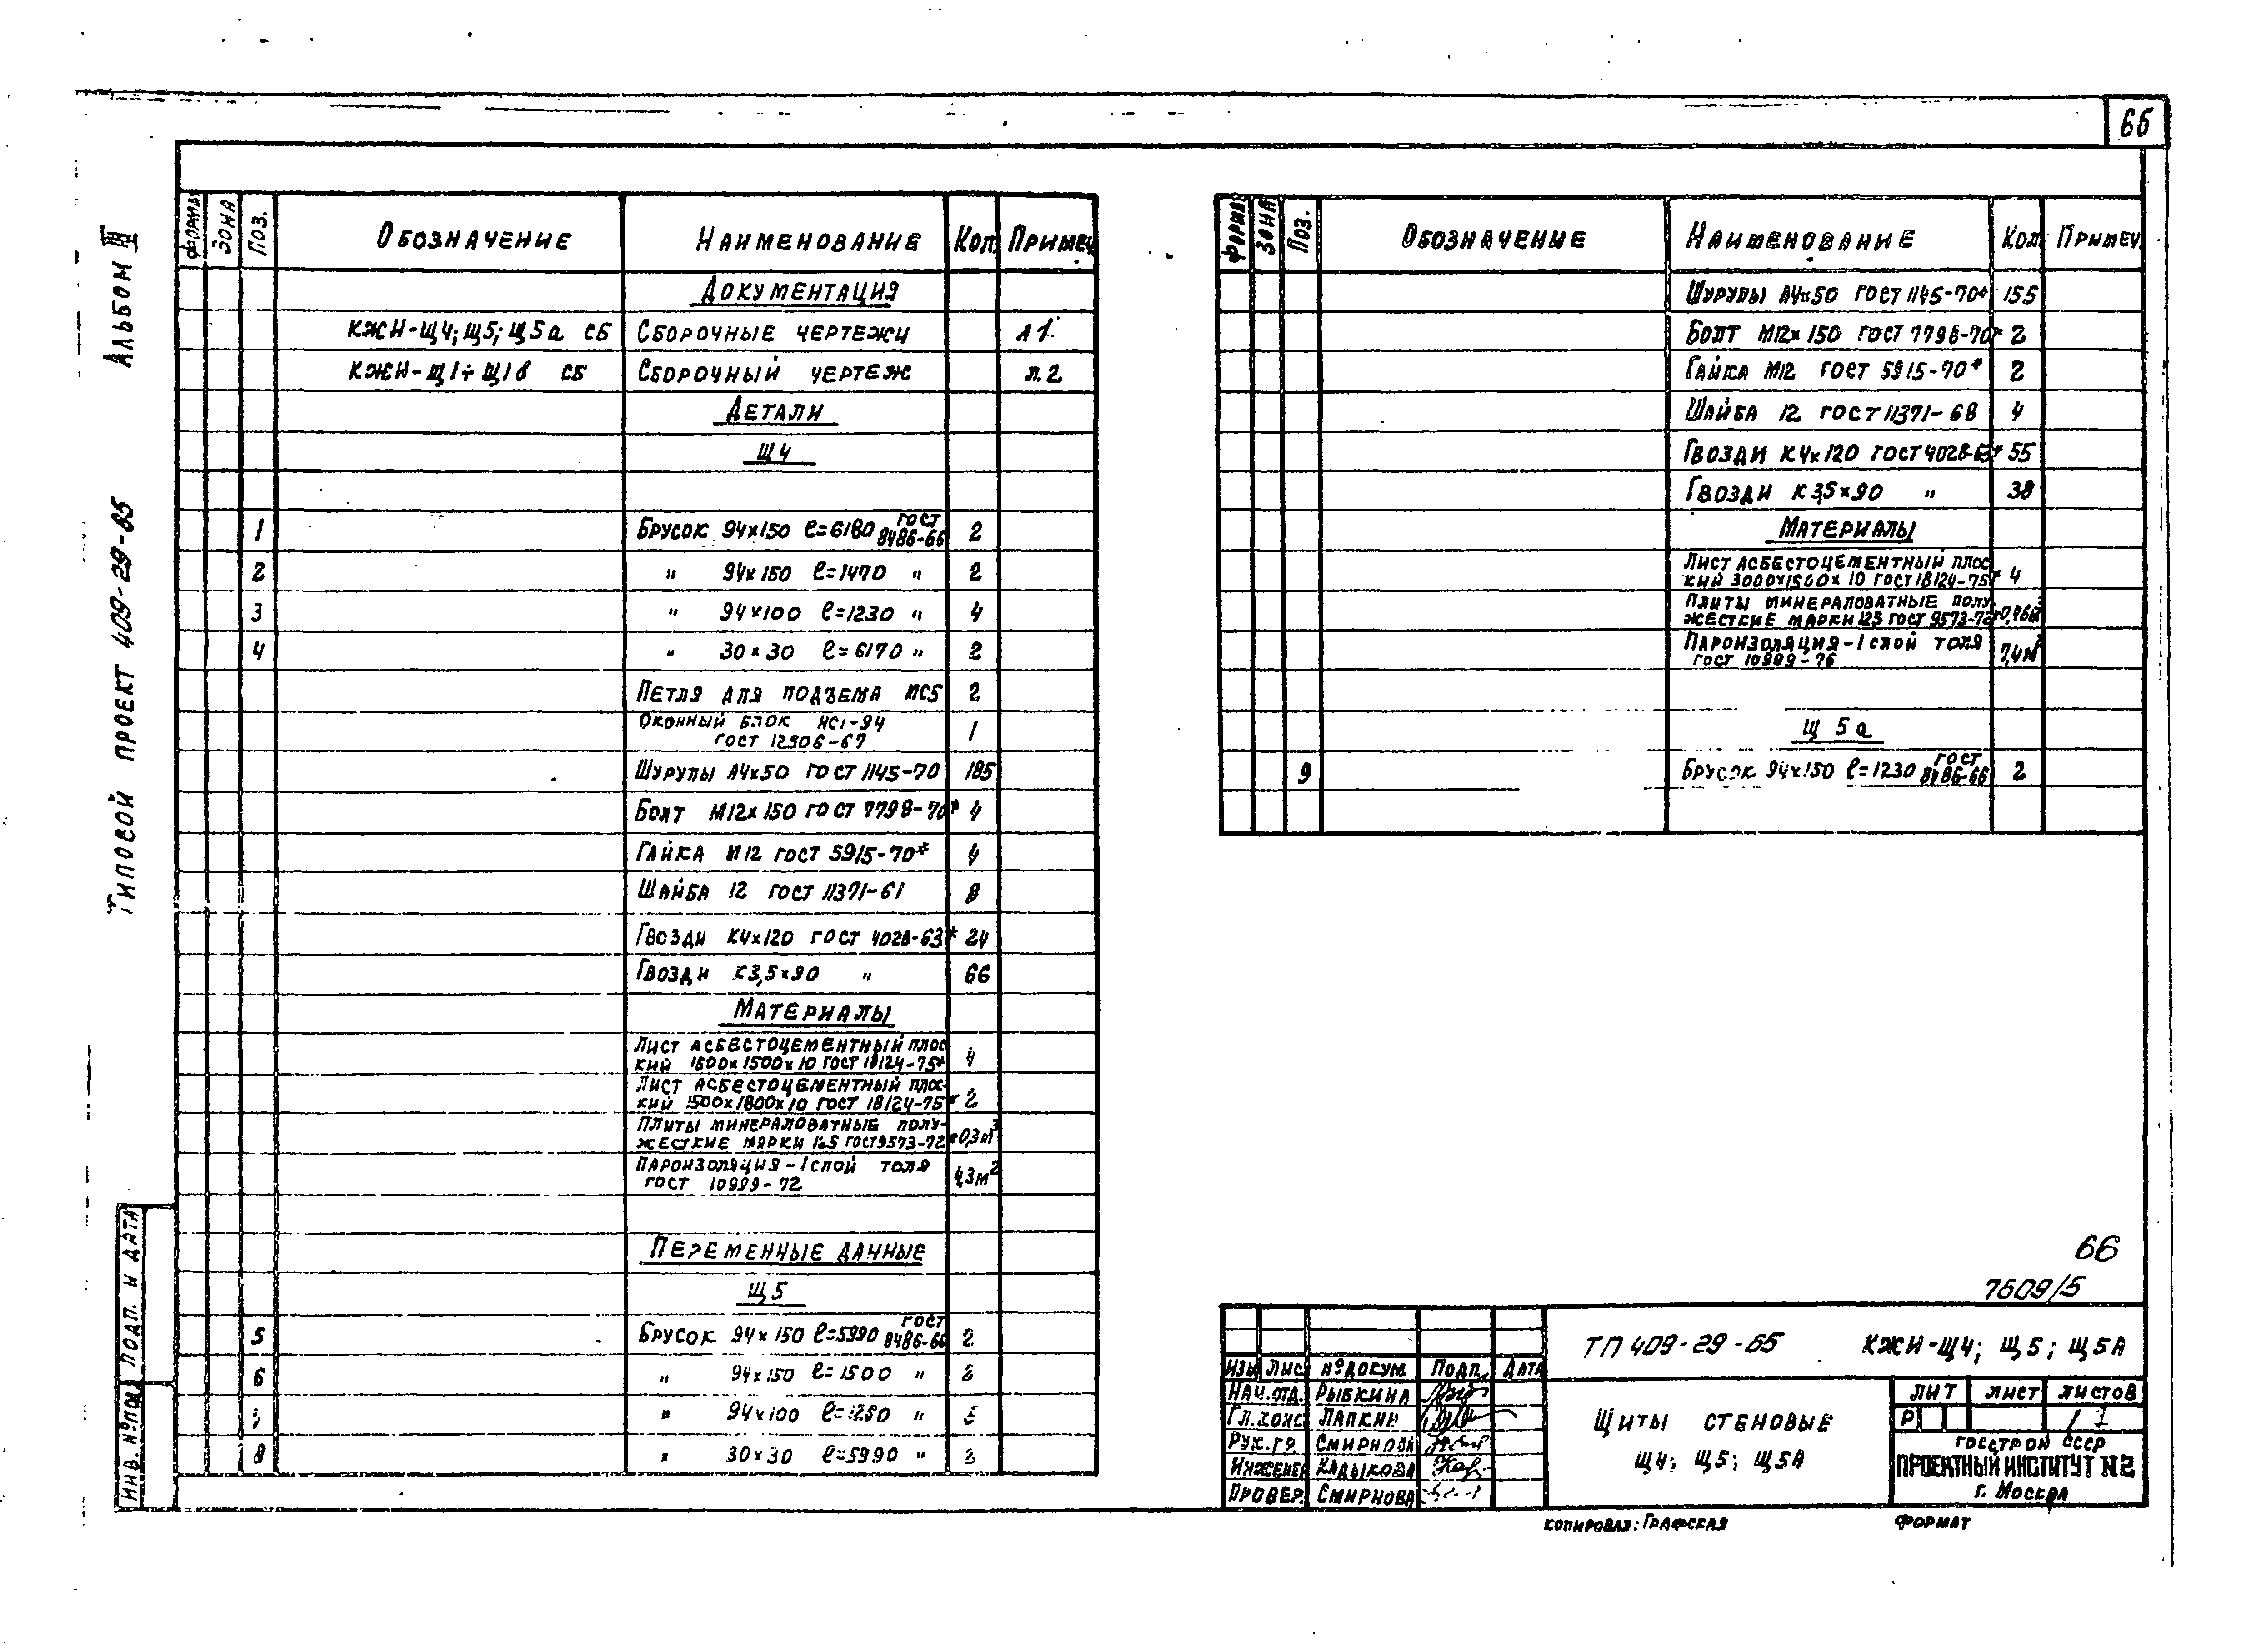 66
Альбом III
Типовой проект 409-29-65
Формат Зона Поз. Обозначение Наименование Кол. Примеч.
Документация
КЖИ-Щ4; Щ5; Щ5а СБ Сборочные чертежи л 1.
КЖИ-Щ1÷Щ18 СБ Сборочный чертеж л. 2
Детали
Щ4
1 Брусок 94×150 ℓ=6180 ГОСТ 8486-66 2
2 " 94×150 ℓ=1470 " 2
3 " 94×100 ℓ=1230 " 4
4 " 30×30 ℓ=6170 " 2
Петля для подъема ПС5 2
Оконный блок НС1-94
ГОСТ 12506-67 1
Шурупы А4×50 ГОСТ 1145-70 185
Болт М12×150 ГОСТ 7798-70* 4
Гайка М12 ГОСТ 5915-70* 4
Шайба 12 ГОСТ 11371-61 8
Гвозди К4×120 ГОСТ 4028-63* 24
Гвозди К3,5×90 " 66
Материалы
Лист асбестоцементный плос
кий 1500×1500×10 ГОСТ 18124-75* 4
Лист асбестоцементный плос-
кий 1500×1800×10 ГОСТ 18124-75* 2
Плиты минераловатные полу-
жесткие марки 125 ГОСТ 9573-72* 0,3 м³
Пароизоляция-1 слой толя
ГОСТ 10999-72 4,3 м²
Переменные данные
Щ5
5 Брусок 94×150 ℓ=5990 ГОСТ 8486-66 2
6 " 94×150 ℓ=1500 " 2
" 94×100 ℓ=1250 "
8 " 30×30 ℓ=5990 " 2
Формат Зона Поз. Обозначение Наименование Кол. Примеч.
Шурупы А4×50 ГОСТ 1145-70* 155
Болт М12×150 ГОСТ 7798-70* 2
Гайка М12 ГОСТ 5915-70* 2
Шайба 12 ГОСТ 11371-68 4
Гвозди К4×120 ГОСТ 4028-63* 55
Гвозди К3,5×90 " 38
Материалы
Лист асбестоцементный плос
кий 3000×1500×10 ГОСТ 18124-75* 4
Плиты минераловатные полу
жесткие марки 125 ГОСТ 9573-72*
Пароизоляция-1 слой толя
ГОСТ 10999-76 7,4 м²
Щ 5а
9 Брусок 94×150 ℓ=1230 ГОСТ 8486-66 2
66
7609/5
ТП 409-29-65 КЖИ-Щ4; Щ5; Щ5А
Изм Лис № докум. Подп. Дата
Нач. отд. Рыбкина
Гл. конс Лапкин
Рук. гр. Смирнова
Инженер Кадыкова
Провер. Смирнова
Щиты стеновые
Щ4; Щ5; Щ5А
Лит Лист Листов
Р 1
Госстрой СССР
ПРОЕКТНЫЙ ИНСТИТУТ №2
г. Москва
Инв. № под. Подп. и дата
Копировал: Графская Формат